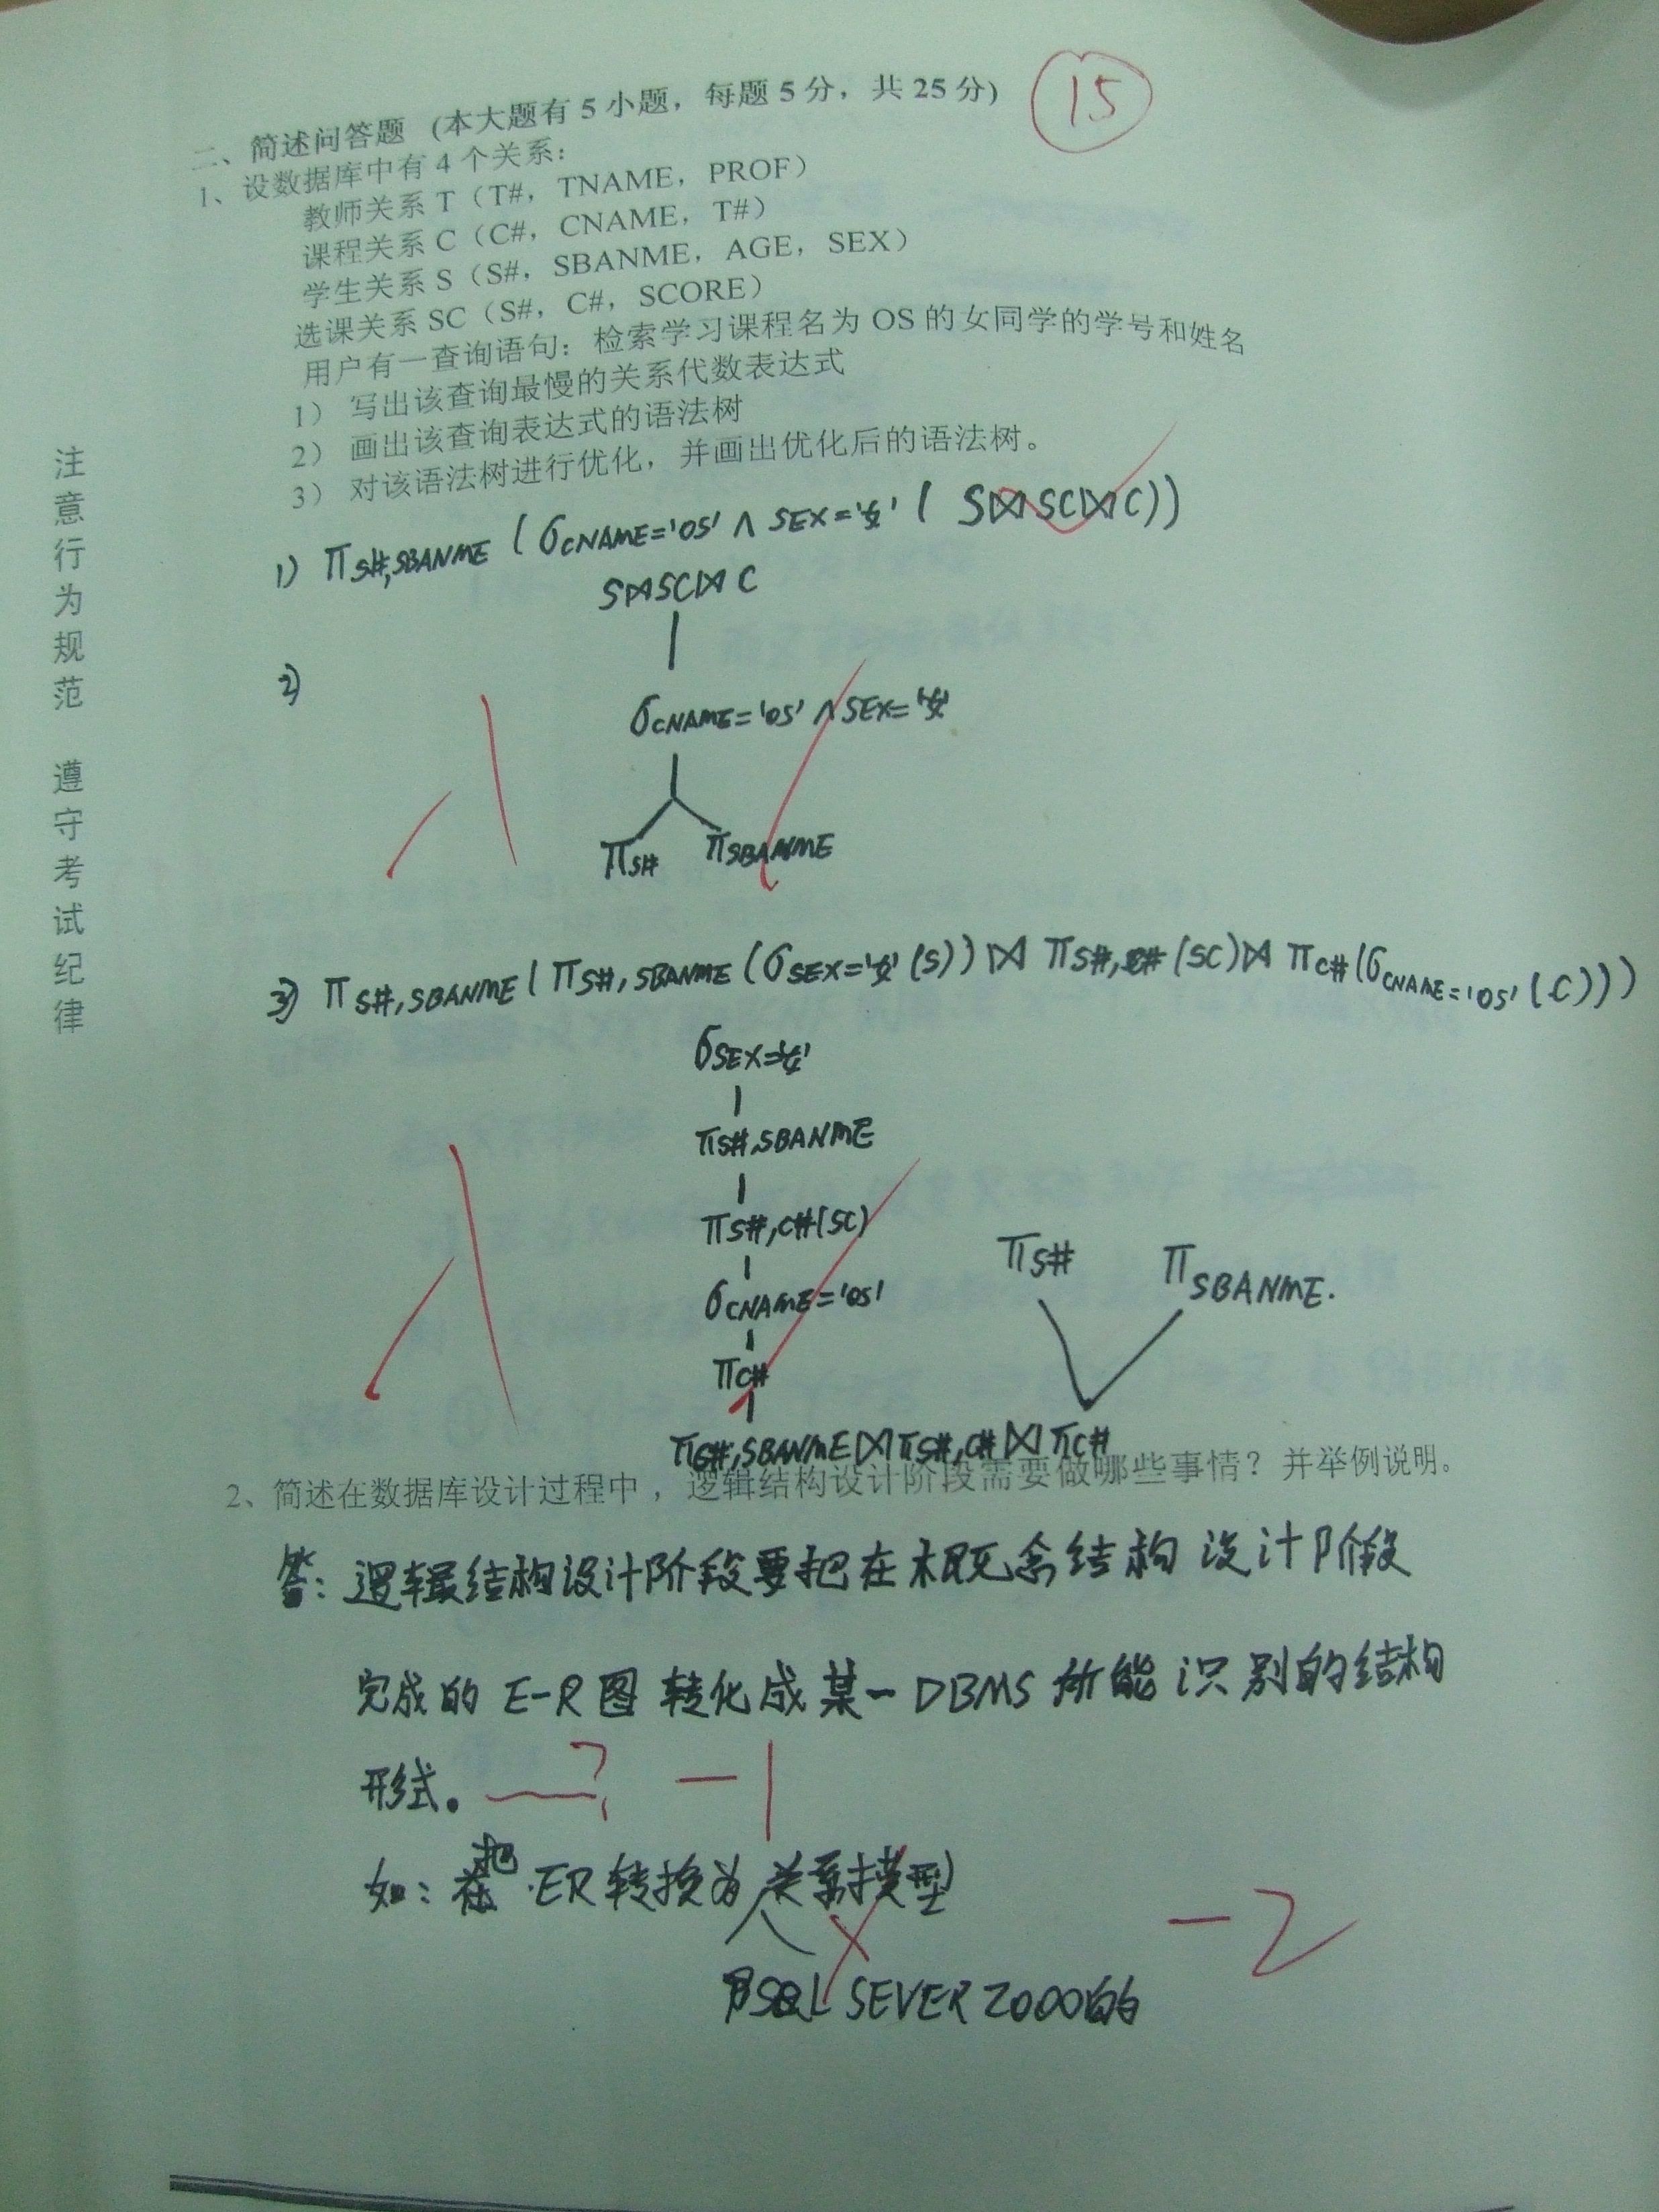 二、简述问答题 (本大题有 5 小题，每题 5 分，共 25 分)
15
1、设数据库中有 4 个关系：
教师关系 T（T#，TNAME，PROF）
课程关系 C（C#，CNAME，T#）
学生关系 S（S#，SBANME，AGE，SEX）
选课关系 SC（S#，C#，SCORE）
用户有一查询语句：检索学习课程名为 OS 的女同学的学号和姓名
1） 写出该查询最慢的关系代数表达式
2） 画出该查询表达式的语法树
3） 对该语法树进行优化，并画出优化后的语法树。
注意行为规范 遵守考试纪律
1) πS#,SBANME (σCNAME='OS' ∧ SEX='女' ( S⋈SC⋈C))
2)
S⋈SC⋈C
σCNAME='OS' ∧ SEX='女'
πS# πSBANME
3) πS#,SBANME ( πS#,SBANME (σSEX='女' (S)) ⋈ πS#,C# (SC) ⋈ πC# (σCNAME='OS' (C)))
σSEX='女'
πS#,SBANME
πS#,C#(SC)
σCNAME='OS'
πC#
πS# πSBANME.
πS#,SBANME⋈πS#,C#⋈πC#
2、简述在数据库设计过程中，逻辑结构设计阶段需要做哪些事情？并举例说明。
答：逻辑结构设计阶段要把在概念结构设计阶段
完成的 E-R图 转化成 某一 DBMS 所能识别的结构
形式。 ? -1
如：把 ER转换为 关系模型
-2
SQL SEVER 2000的